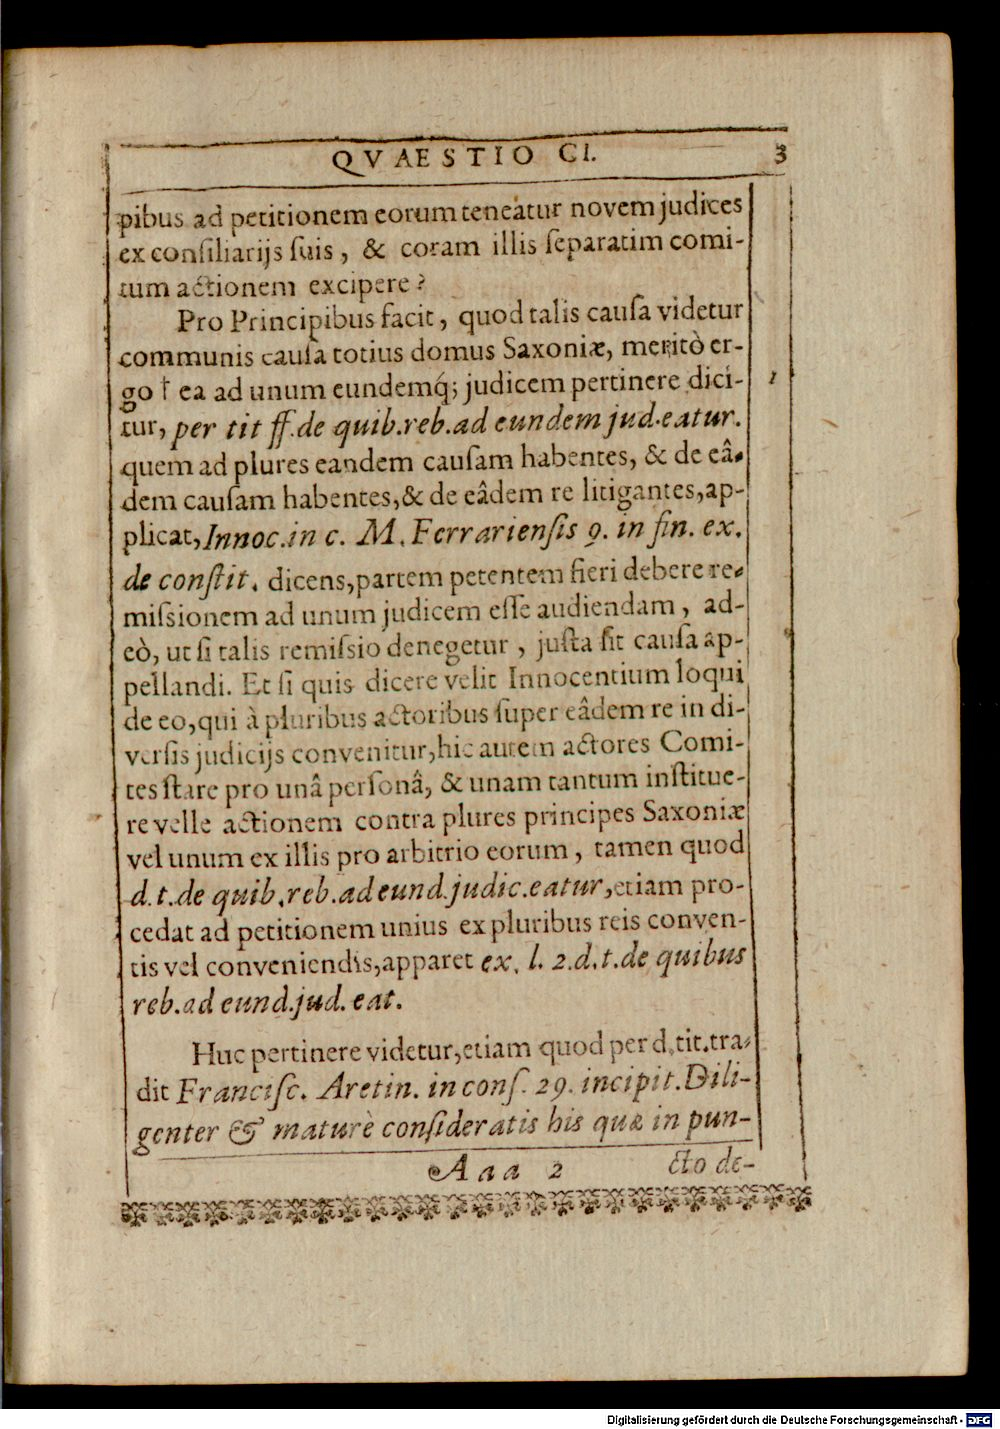 QVAESTIO CI. 3
pibus ad petitionem eorum teneátur novem judices
ex consiliarijs suis, & coram illis separatim comi-
tum actionem excipere?
Pro Principibus facit, quod talis causa videtur
communis causa totius domus Saxoniæ, meritò er-
go † ea ad unum eundemq́; judicem pertinere dici- 1
tur, per tit ff. de quib. reb. ad eundem jud. eatur.
quem ad plures eandem causam habentes, & de eâ-
dem causam habentes, & de eâdem re litigantes, ap-
plicat, Innoc. in c. M. Ferrariensis 9. in fin. ex.
de constit. dicens, partem petentem fieri debere re-
missionem ad unum judicem esse audiendam, ad-
eò, ut si talis remissio denegetur, justa sit causa ap-
pellandi. Et si quis dicere velit Innocentium loqui
de eo, qui à pluribus actoribus super eâdem re in di-
versis judicijs convenitur, hic autem actores Comi-
tes stare pro unâ personâ, & unam tantum institue-
re velle actionem contra plures principes Saxoniæ
vel unum ex illis pro arbitrio eorum, tamen quod
d. t. de quib. reb. ad eund. judic. eatur, etiam pro-
cedat ad petitionem unius ex pluribus reis conven-
tis vel conveniendis, apparet ex. l. 2. d. t. de quibus
reb. ad eund. jud. eat.
Huc pertinere videtur, etiam quod per d. tit. tra-
dit Francisc. Aretin. in cons. 29. incipit. Dili-
genter & maturè consideratis his quæ in pun-
Aaa 2 cto de-
Digitalisierung gefördert durch die Deutsche Forschungsgemeinschaft - DFG